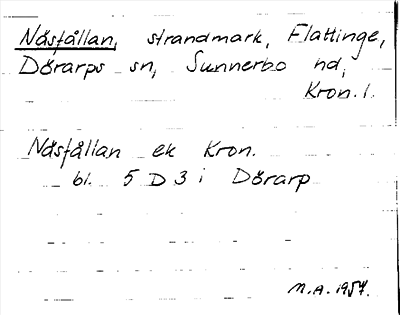 Näsfållan, strandmark, Flattinge,
Dörarps sn, Sunnerbo hd,
Kron. l.
Näsfållan ek Kron.
bl. 5 D 3 i Dörarp
M.A. 1957.